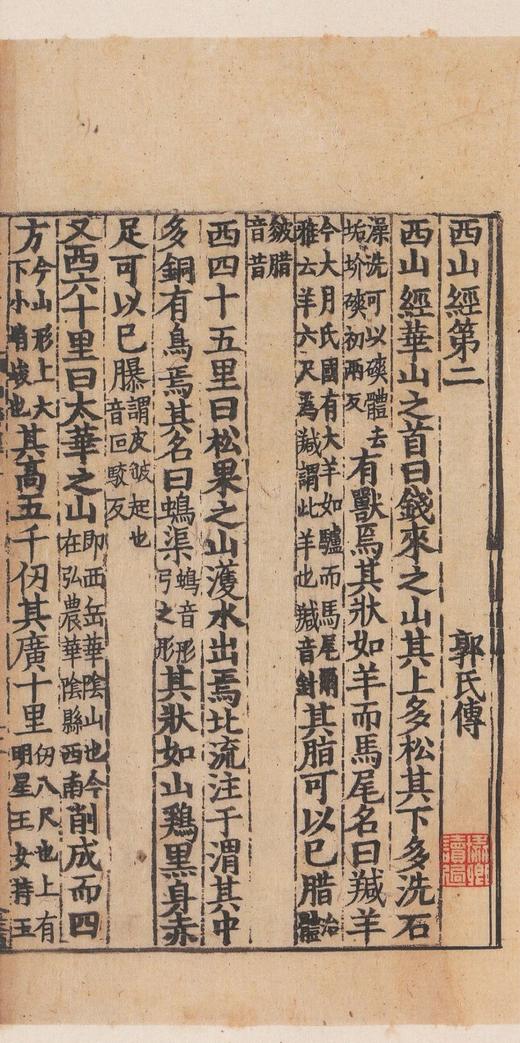 西山經第二 郭氏傳
西山經華山之首曰錢來之山其上多松其下多洗石
澡洗可以磢體去垢圿磢初兩反有獸焉其狀如羊而馬尾名曰羬羊
今大月氏國有大羊如驢而馬尾爾雅云羊六尺為羬謂此羊也羬音針其脂可以已腊治體
皴腊音昔
西四十五里曰松果之山濩水出焉北流注于渭其中
多銅有鳥焉其名曰䳋渠䳋音彤弓之彤其狀如山鷄黑身赤
足可以已䑋謂皮皴起也音回駮反
又西六十里曰太華之山即西岳華陰山也今在弘農華陰縣西南削成而四
方今山形上大下小峭峻也其高五千仞其廣十里仞八尺也上有明星玉女持玉
讀過